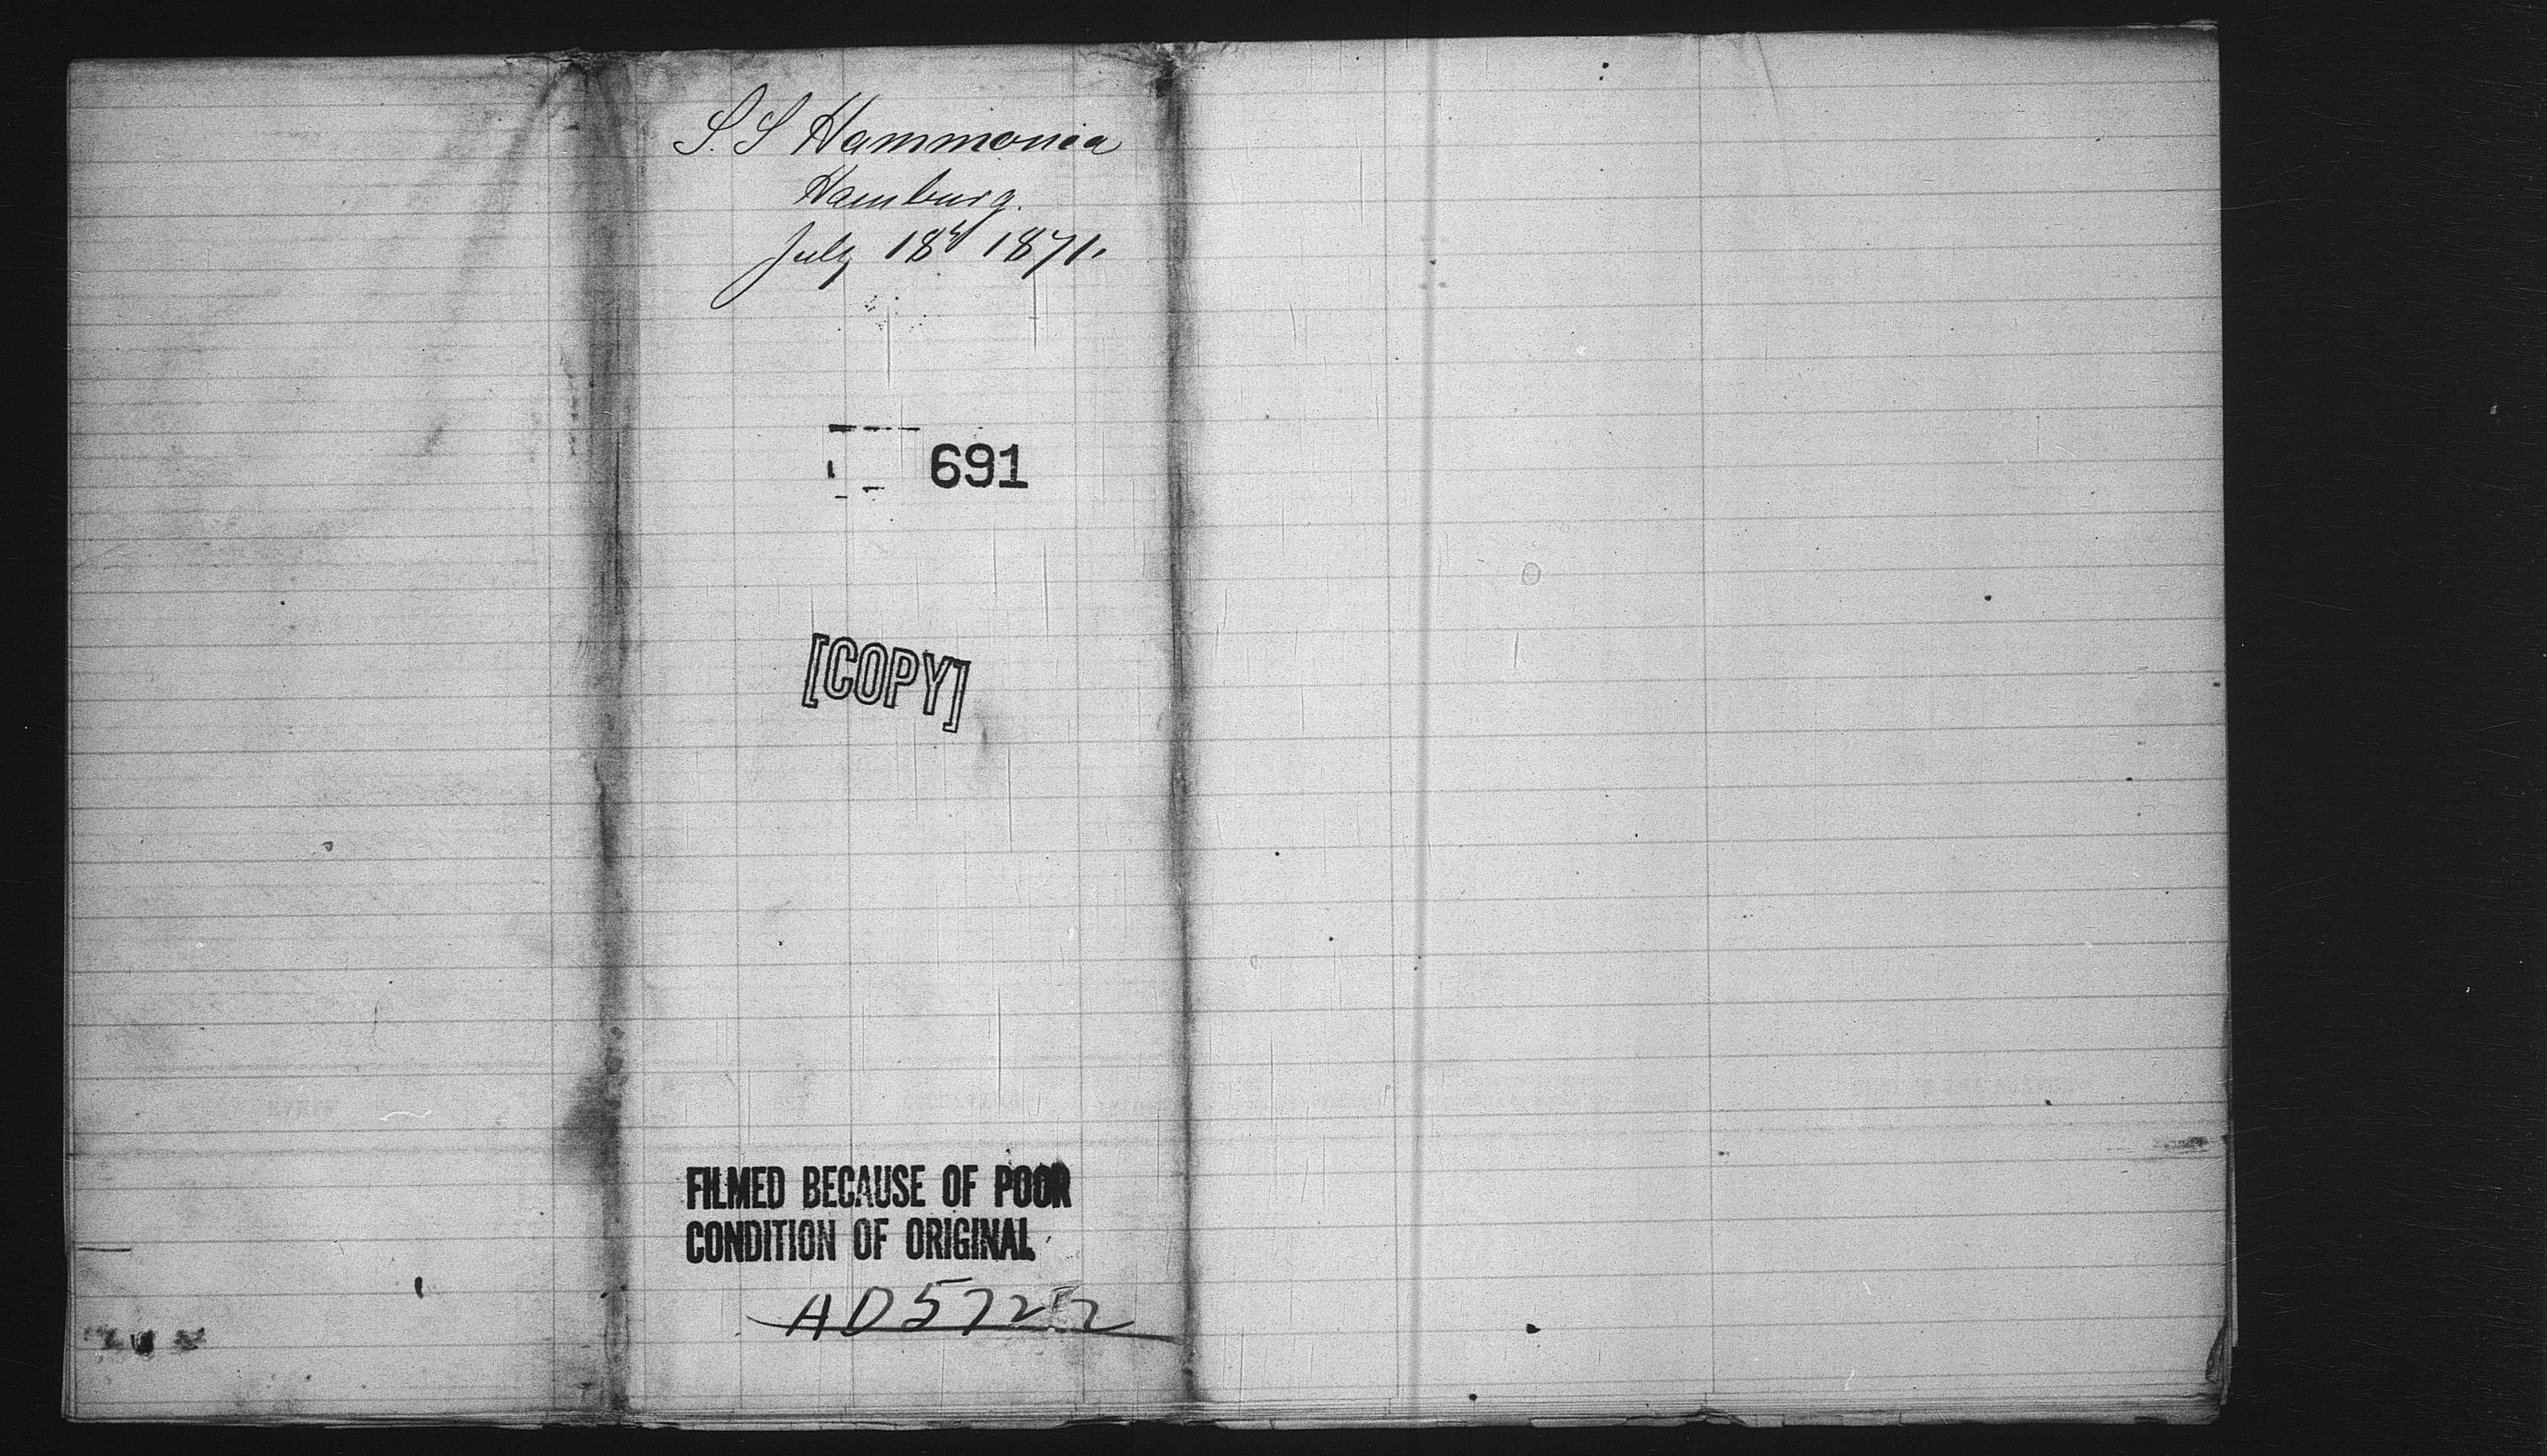 S. S Hammonia
Hamburg.
July 18th 1871.
691
[COPY]
FILMED BECAUSE OF POOR
CONDITION OF ORIGINAL